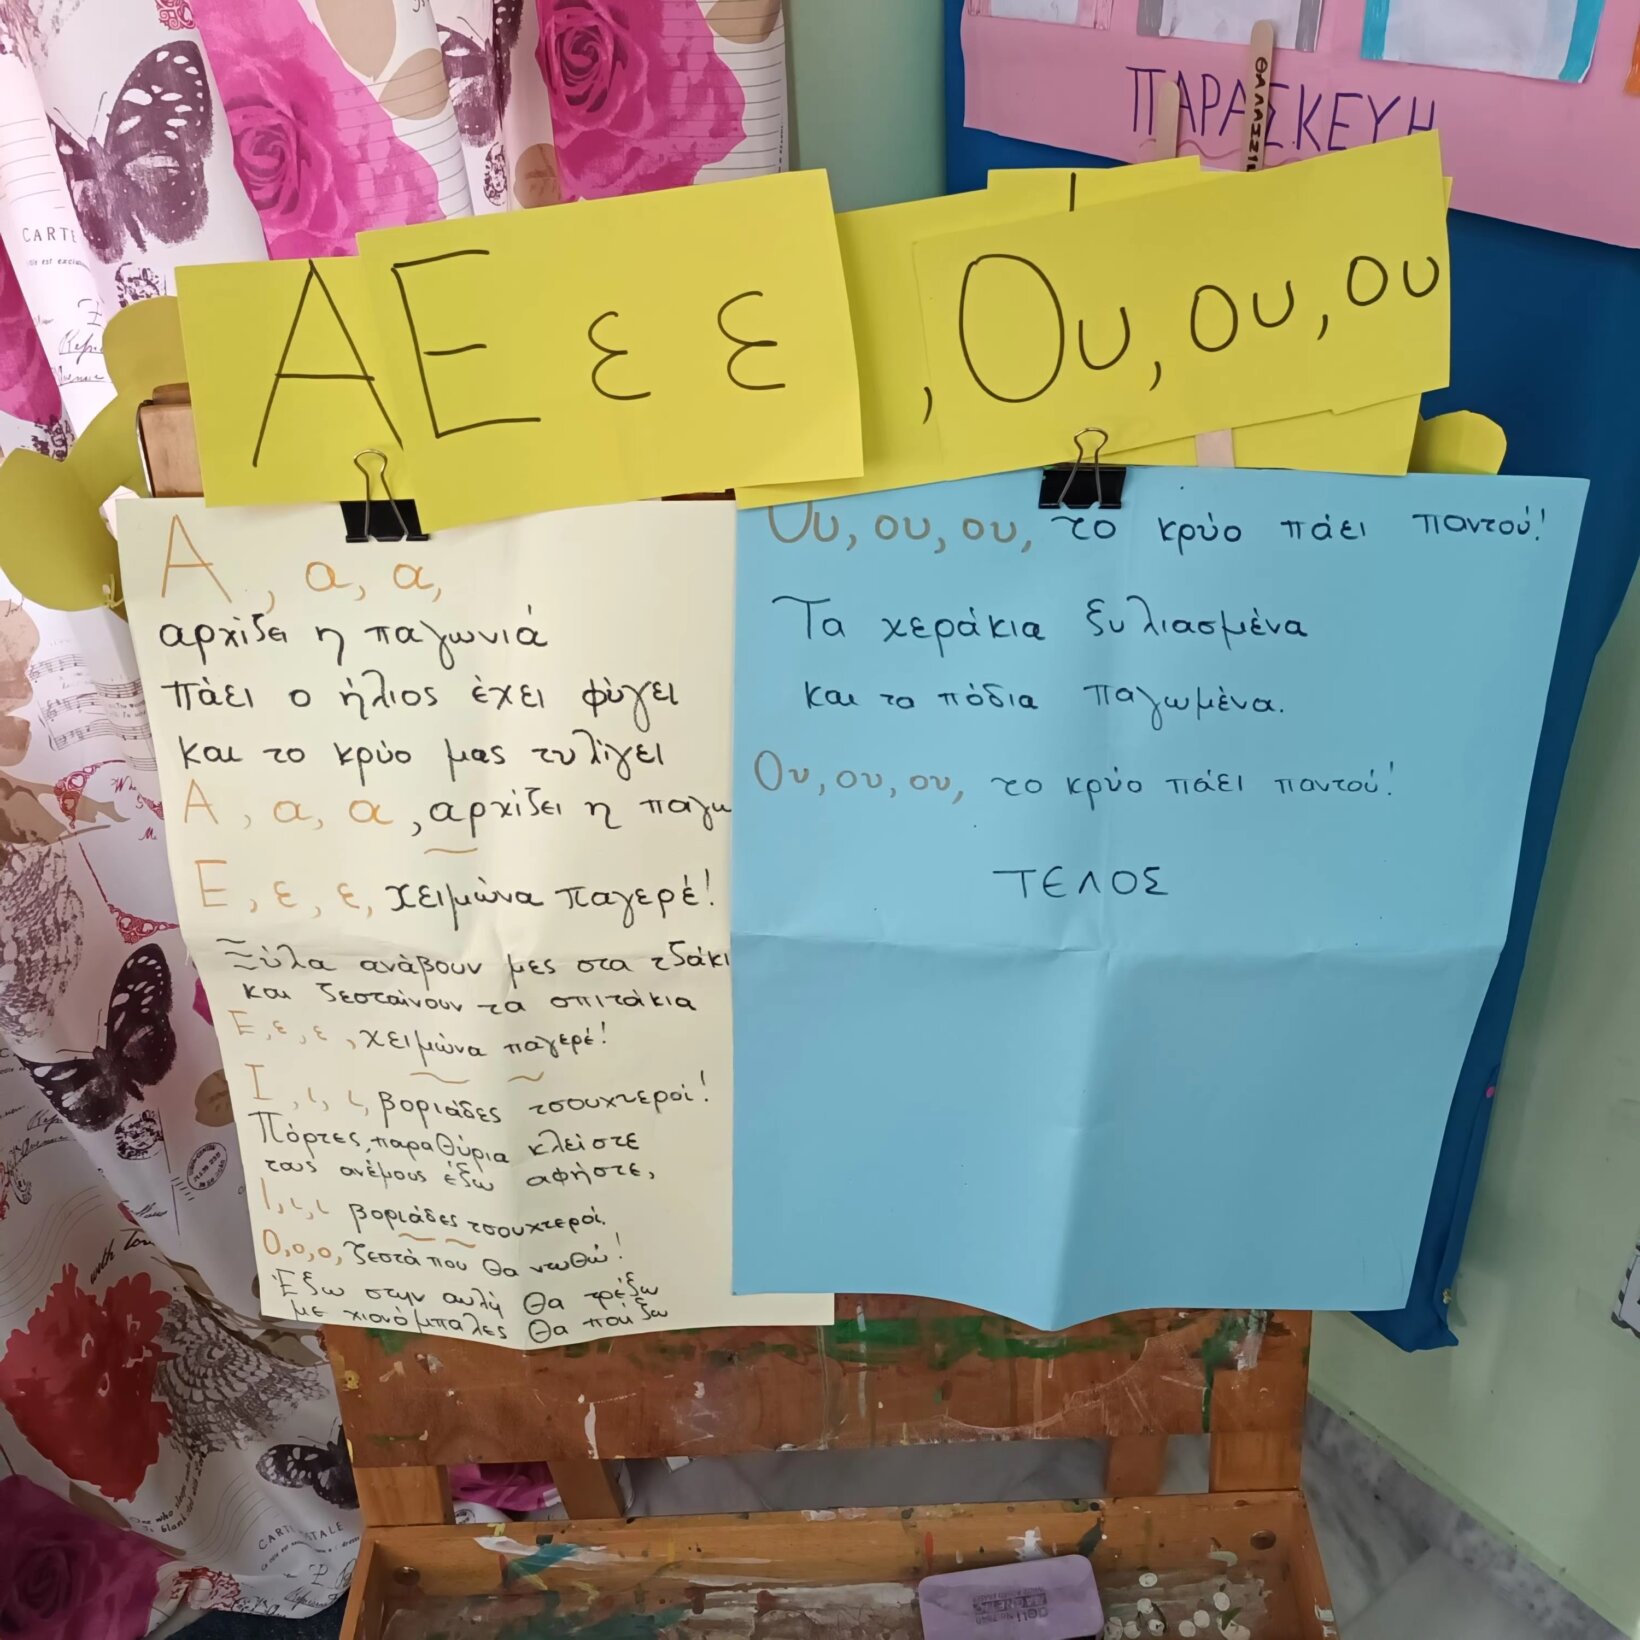 ΠΑΡΑΣΚΕΥΗ
Α
Ε ε ε
, Ου, ου, ου
Α, α, α,
αρχίζει η παγωνιά
πάει ο ήλιος έχει φύγει
και το κρύο μας τυλίγει
Α, α, α, αρχίζει η παγω
Ε, ε, ε, χειμώνα παγερέ!
Ξύλα ανάβουν μες στα τζάκι
και ζεσταίνουν τα σπιτάκια
Ε, ε, ε, χειμώνα παγερέ!
Ι, ι, ι, βοριάδες τσουχτεροί!
Πόρτες, παραθύρια κλείστε
τους ανέμους έξω αφήστε,
Ι, ι, ι βοριάδες τσουχτεροί.
Ο, ο, ο, ζεστά που θα ντυθώ!
Έξω στην αυλή θα τρέξω
με χιονόμπαλες θα παίξω
Ου, ου, ου, το κρύο πάει παντού!
Τα χεράκια ξυλιασμένα
και τα πόδια παγωμένα.
Ου, ου, ου, το κρύο πάει παντού!
ΤΕΛΟΣ